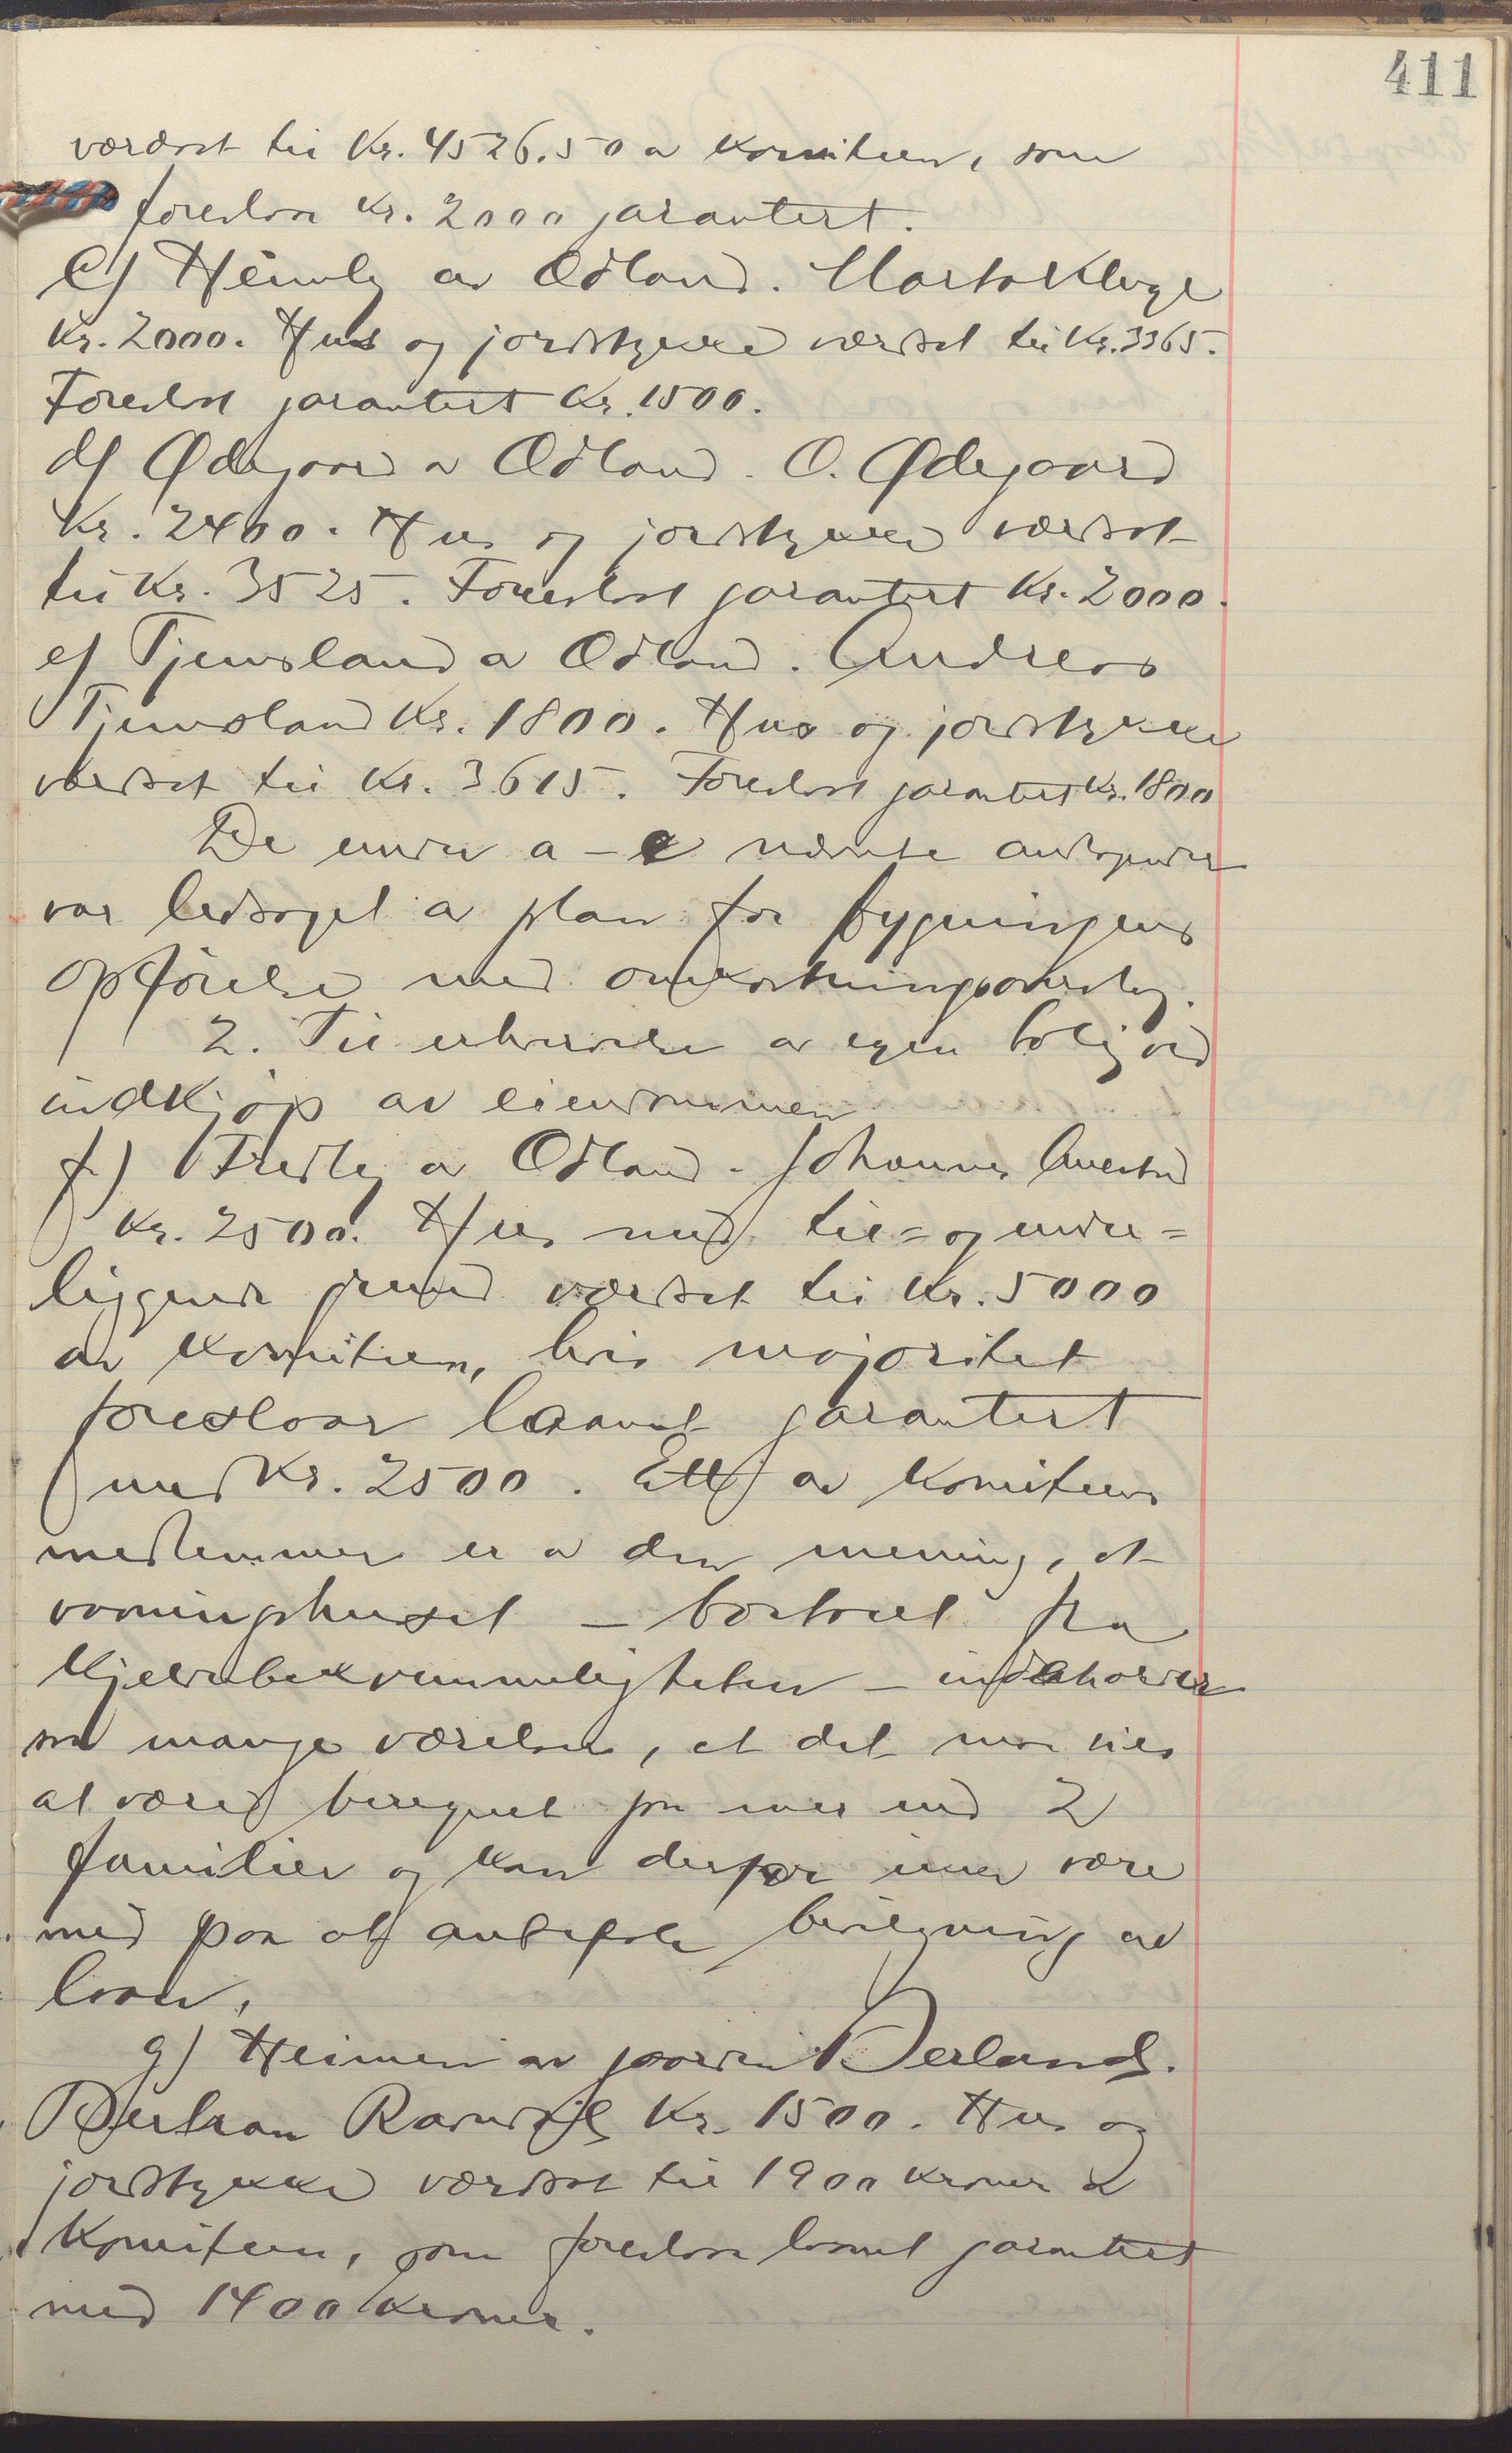 411
værdsat til Kr. 4526.50 a komiteen, som
foreslaar Kr. 2000 garantert.
c) Heimly av Odland. Marta Kluge
Kr. 2000. Hus og jordstykke værdsat til Kr. 3365.
Foreslaat garantert Kr. 1500.
d) Ødegaard a Odland. O. Ødegaard
Kr. 2400. Hus og jordstykke værdsat
til Kr. 3525. Foreslaat garantert Kr. 2000.
e) Tjemsland a Odland. Andreas
Tjemsland Kr. 1800. Hus og jordstykke
værdsat til Kr. 3615. Foreslaat garantert Kr. 1800
De under a – e nævnte andragender
var ledsaget a plan for bygningens
opførelse med omkostningsoverslag.
2. Til erhvervelse av egen bolig ved
indkjøp av eiendommen
f.) Fredly a Odland. Johannes Auestad
Kr. 2500. Hus med til= og under=
liggende grund værdsat til Kr. 5000
av komiteen, hvis majoritet
foreslaar laanet garantert
med Kr. 2500. Ett av komiteens
medlemmer er a den mening, at
vaaningshuset – bortset fra
kjelderbekvemmeligheten – indeholder
saa mange værelser, at det maa sies
at være beregnet paa mer end 2
familier og kan derfor ikke være
med paa at anbefale bevilgning av
laan.
g) Heimen av gaarden Værland.
Bertran Ravndal Kr. 1500. Hus og
jordstykke værdsat til 1900 kroner a
Komiteen, som foreslaar laanet garantert
med 1400 kroner.